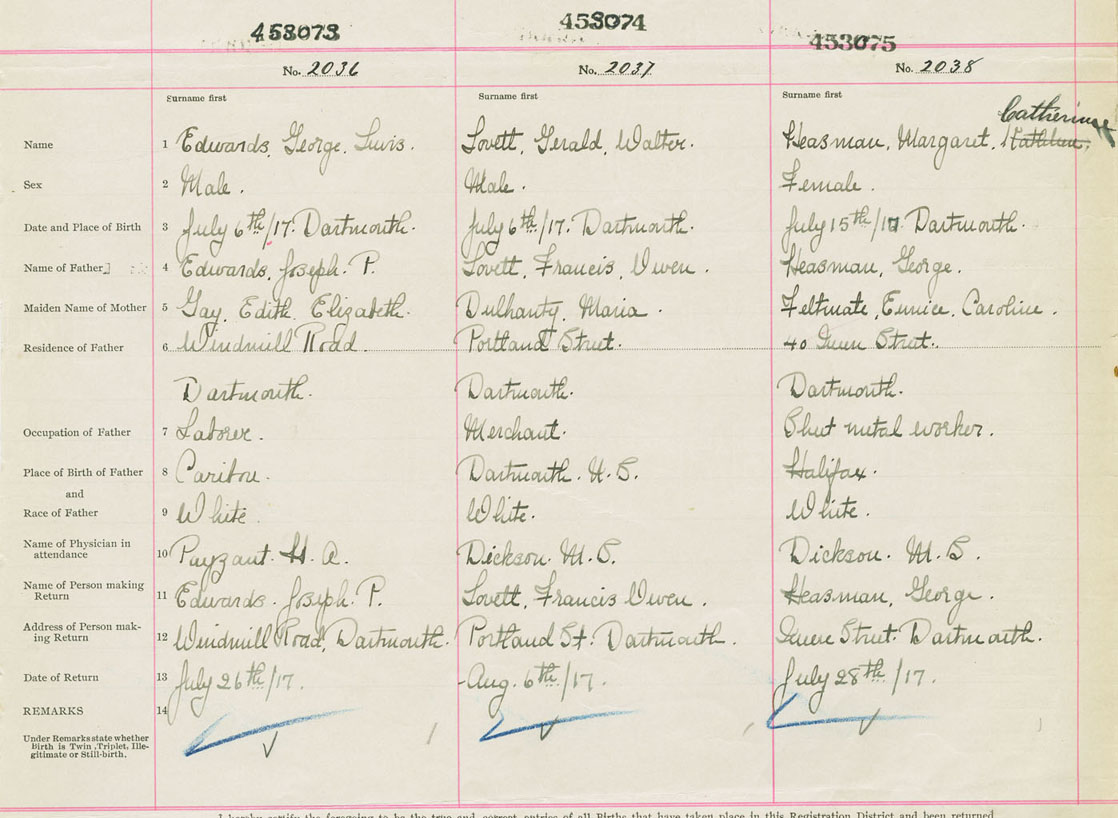 453073 453074 453075
No. 2036 No. 2037 No. 2038
Surname first Surname first Surname first
Catherine
Name 1 Edwards, George, Lewis. Lovett, Gerald, Walter. Heasman, Margaret, Kathleen,
Sex 2 Male. Male. Female.
Date and Place of Birth 3 July 6th/17. Dartmouth. July 6th/17. Dartmouth. July 15th/17 Dartmouth.
Name of Father 4 Edwards, Joseph. P. Lovett, Francis, Owen. Heasman, George.
Maiden Name of Mother 5 Gay, Edith Elizabeth. Dulhanty, Maria. Feltmate, Eunice, Caroline.
Residence of Father 6 Windmill Road. Portland Street. 40 Queen Street.
Dartmouth. Dartmouth. Dartmouth.
Occupation of Father 7 Laborer. Merchant. Sheet metal worker.
Place of Birth of Father 8 Caribou. Dartmouth. N.S. Halifax.
and
Race of Father 9 White. White. White.
Name of Physician in
attendance 10 Payzant. H. A. Dickson. M. S. Dickson. M. S.
Name of Person making
Return 11 Edwards. Joseph. P. Lovett, Francis Owen. Heasman, George.
Address of Person mak-
ing Return 12 Windmill Road, Dartmouth. Portland St. Dartmouth. Queen Street. Dartmouth.
Date of Return 13 July 26th/17. Aug. 6th/17. July 28th/17.
REMARKS 14
Under Remarks state whether
Birth is Twin, Triplet, Ille-
gitimate or Still-birth.
I hereby certify the foregoing to be the true and correct entries of all Births that have taken place in this Registration District and been returned